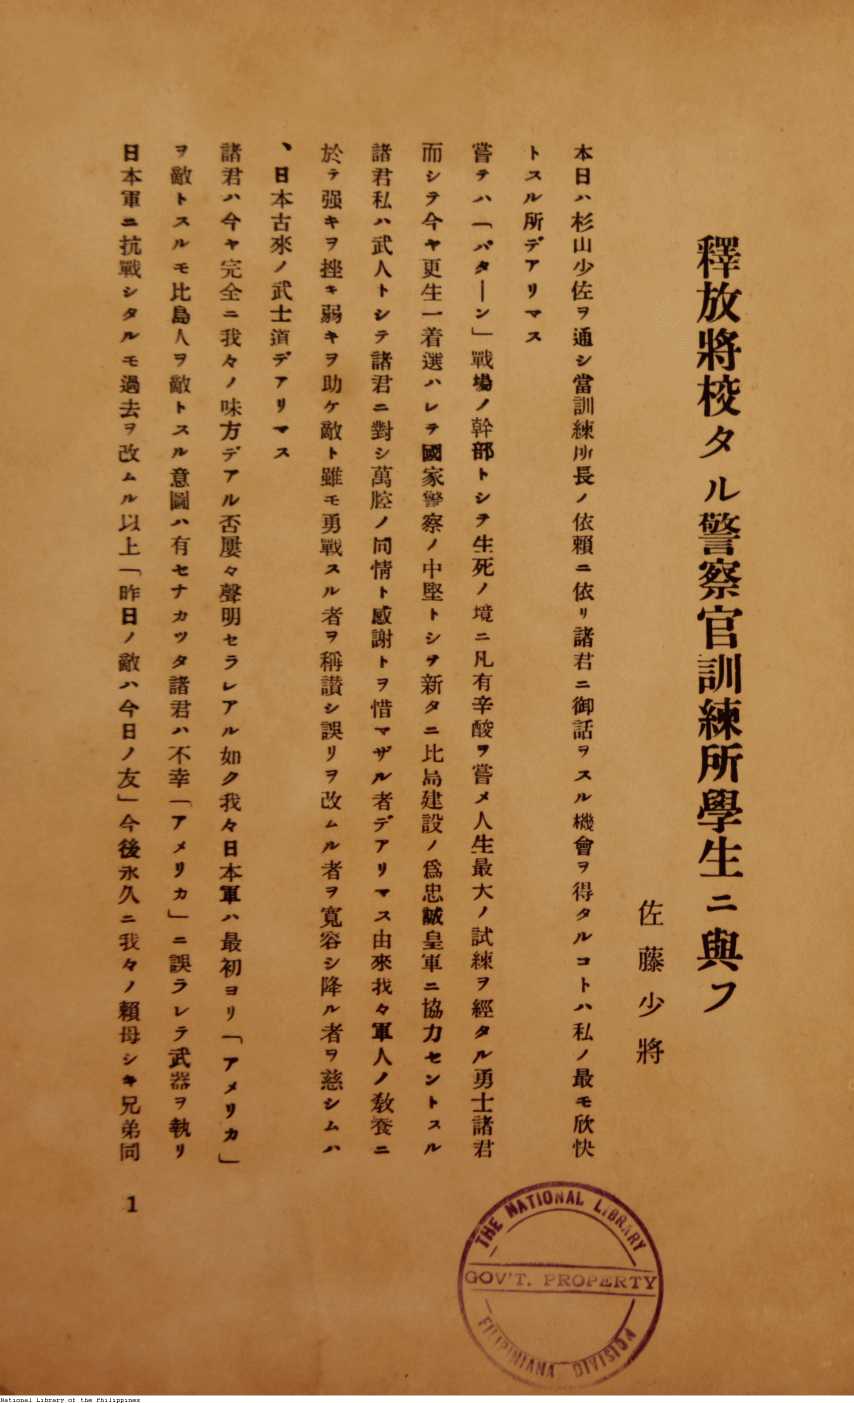 釋放將校タル警察官訓練所學生ニ與フ
佐藤少將
本日ハ杉山少佐ヲ通シ當訓練所長ノ依賴ニ依リ諸君ニ御話ヲスル機會ヲ得タルコトハ私ノ最モ欣快
トスル所デアリマス
嘗テハ「バターン」戰場ノ幹部トシテ生死ノ境ニ凡有辛酸ヲ嘗メ人生最大ノ試練ヲ經タル勇士諸君
而シテ今ヤ更生一着選ハレテ國家警察ノ中堅トシヲ新タニ比島建設ノ爲忠誠皇軍ニ協力セントスル
諸君私ハ武人トシテ諸君ニ對シ萬腔ノ同情ト感謝トヲ惜マザル者デアリマス由來我々軍人ノ敎養ニ
於テ强キヲ挫キ弱キヲ助ケ敵ト雖モ勇戰スル者ヲ稱讃シ誤リヲ改ムル者ヲ寬容シ降ル者ヲ慈シムハ
、日本古來ノ武士道デアリマス
諸君ハ今ヤ完全ニ我々ノ味方デアル否屢々聲明セラレアル如ク我々日本軍ハ最初ヨリ「アメリカ」
ヲ敵トスルモ比島人ヲ敵トスル意圖ハ有セナカツタ諸君ハ不幸「アメリカ」ニ誤ラレテ武器ヲ執リ
日本軍ニ抗戰シタルモ過去ヲ改ムル以上「昨日ノ敵ハ今日ノ友」今後永久ニ我々ノ賴母シキ兄弟同
1
THE NATIONAL LIBRARY
GOV'T. PROPERTY
FILIPINIANA DIVISION
National Library of the Philippines